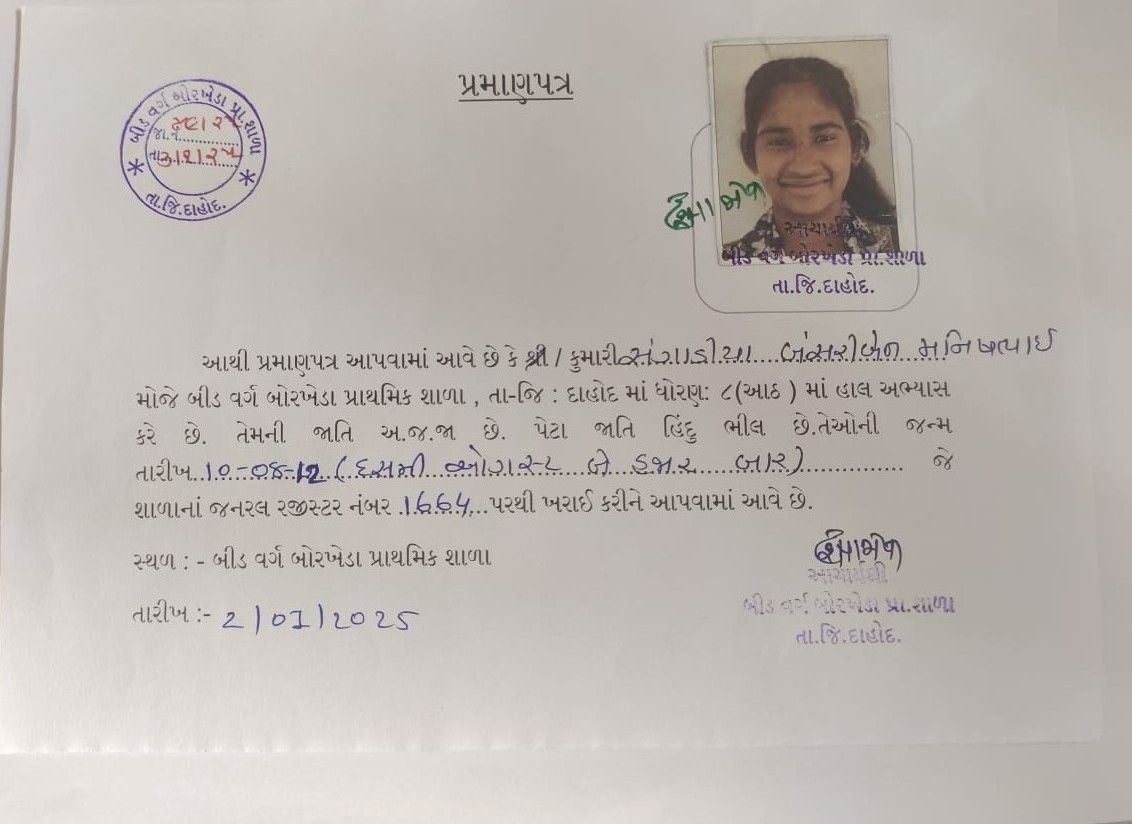 પ્રમાણપત્ર
બીડ વર્ગ બોરખેડા પ્રા.શાળા
જા.નં.
તા.
તા.જિ.દાહોદ.
આચાર્યશ્રી
બીડ વર્ગ બોરખેડા પ્રા.શાળા
તા.જિ.દાહોદ.
આથી પ્રમાણપત્ર આપવામાં આવે છે કે શ્રી / કુમારી સંગાડીયા બંસરીબેન મનિષભાઈ
મોજે બીડ વર્ગ બોરખેડા પ્રાથમિક શાળા , તા-જિ : દાહોદ માં ધોરણ: ૮(આઠ ) માં હાલ અભ્યાસ
કરે છે. તેમની જાતિ અ.જ.જા છે. પેટા જાતિ હિંદુ ભીલ છે.તેઓની જન્મ
તારીખ 10-08-12 (દસમી ઓગસ્ટ બે હજાર બાર) જે
શાળાનાં જનરલ રજીસ્ટર નંબર 1664 પરથી ખરાઈ કરીને આપવામાં આવે છે.
સ્થળ : - બીડ વર્ગ બોરખેડા પ્રાથમિક શાળા
તારીખ :- 2/01/2025
આચાર્યશ્રી
બીડ વર્ગ બોરખેડા પ્રા.શાળા
તા.જિ.દાહોદ.